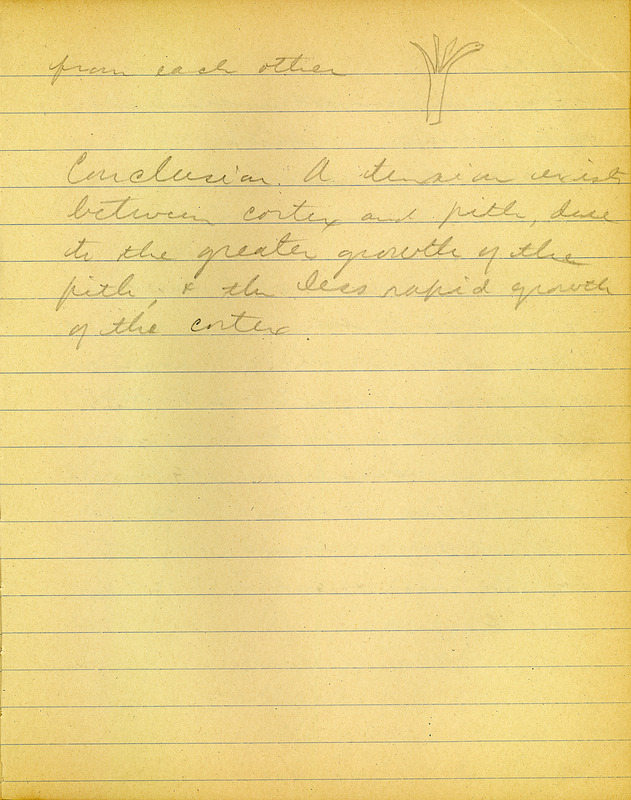 from each other
Conclusion. A tension exists
between cortex and pith, due
to the greater growth of the
pith, & the less rapid growth
of the cortex